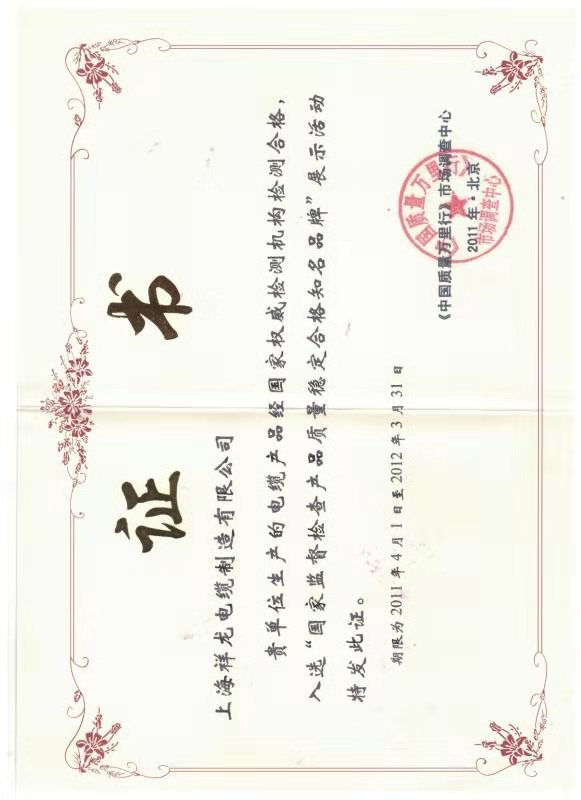 证书
上海祥龙电缆制造有限公司
贵单位生产的电缆产品经国家权威检测机构检测合格，
入选“国家监督检查产品质量稳定合格知名品牌”展示活动
特发此证。
期限为2011年4月1日至2012年3月31日
《中国质量万里行》市场调查中心
2011年·北京
中国质量万里行
市场调查中心